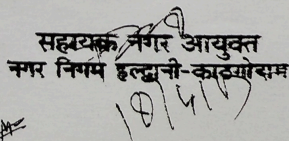 सहायक नगर आयुक्त
नगर निगम हल्द्वानी-काठगोदाम